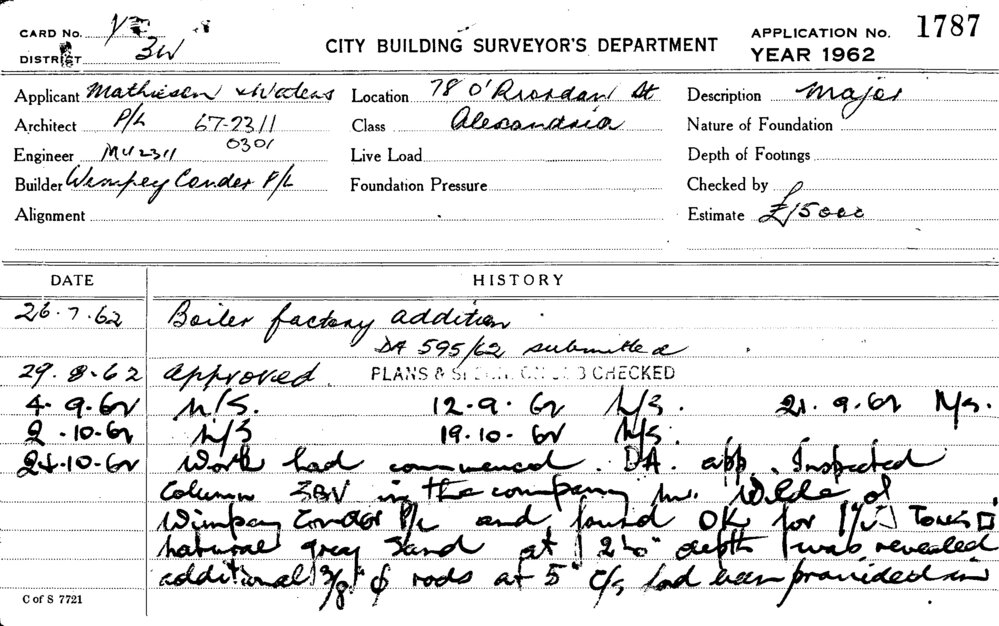 CARD No.
CITY BUILDING SURVEYOR'S DEPARTMENT
APPLICATION No. 1787
DISTRICT 3W
YEAR 1962
Applicant Mathiesen & Waters Location 78 O'Riordan St Description Major
Architect P/L 67-2311 Class Alexandria Nature of Foundation
0301
Engineer MU2311 Live Load Depth of Footings
Builder Wimpey Conder P/L Foundation Pressure Checked by
Alignment Estimate £15000
DATE HISTORY
26.7.62 Boiler factory addition
DA 595/62 submitted
29.8.62 approved. PLANS & CHECKED
4.9.62 N/S. 12.9.62 N/S. 21.9.62 N/S.
2.10.62 N/S 19.10.62 N/S.
24.10.62 Work had commenced. DA. app. Inspected
Column 3BV in the company Mr. Wilde of
Wimpey Condor P/L and found OK for Tons □
natural grey sand at depth was revealed
additional 3/8" φ rods at 5" C/s had been provided in
C of S 7721